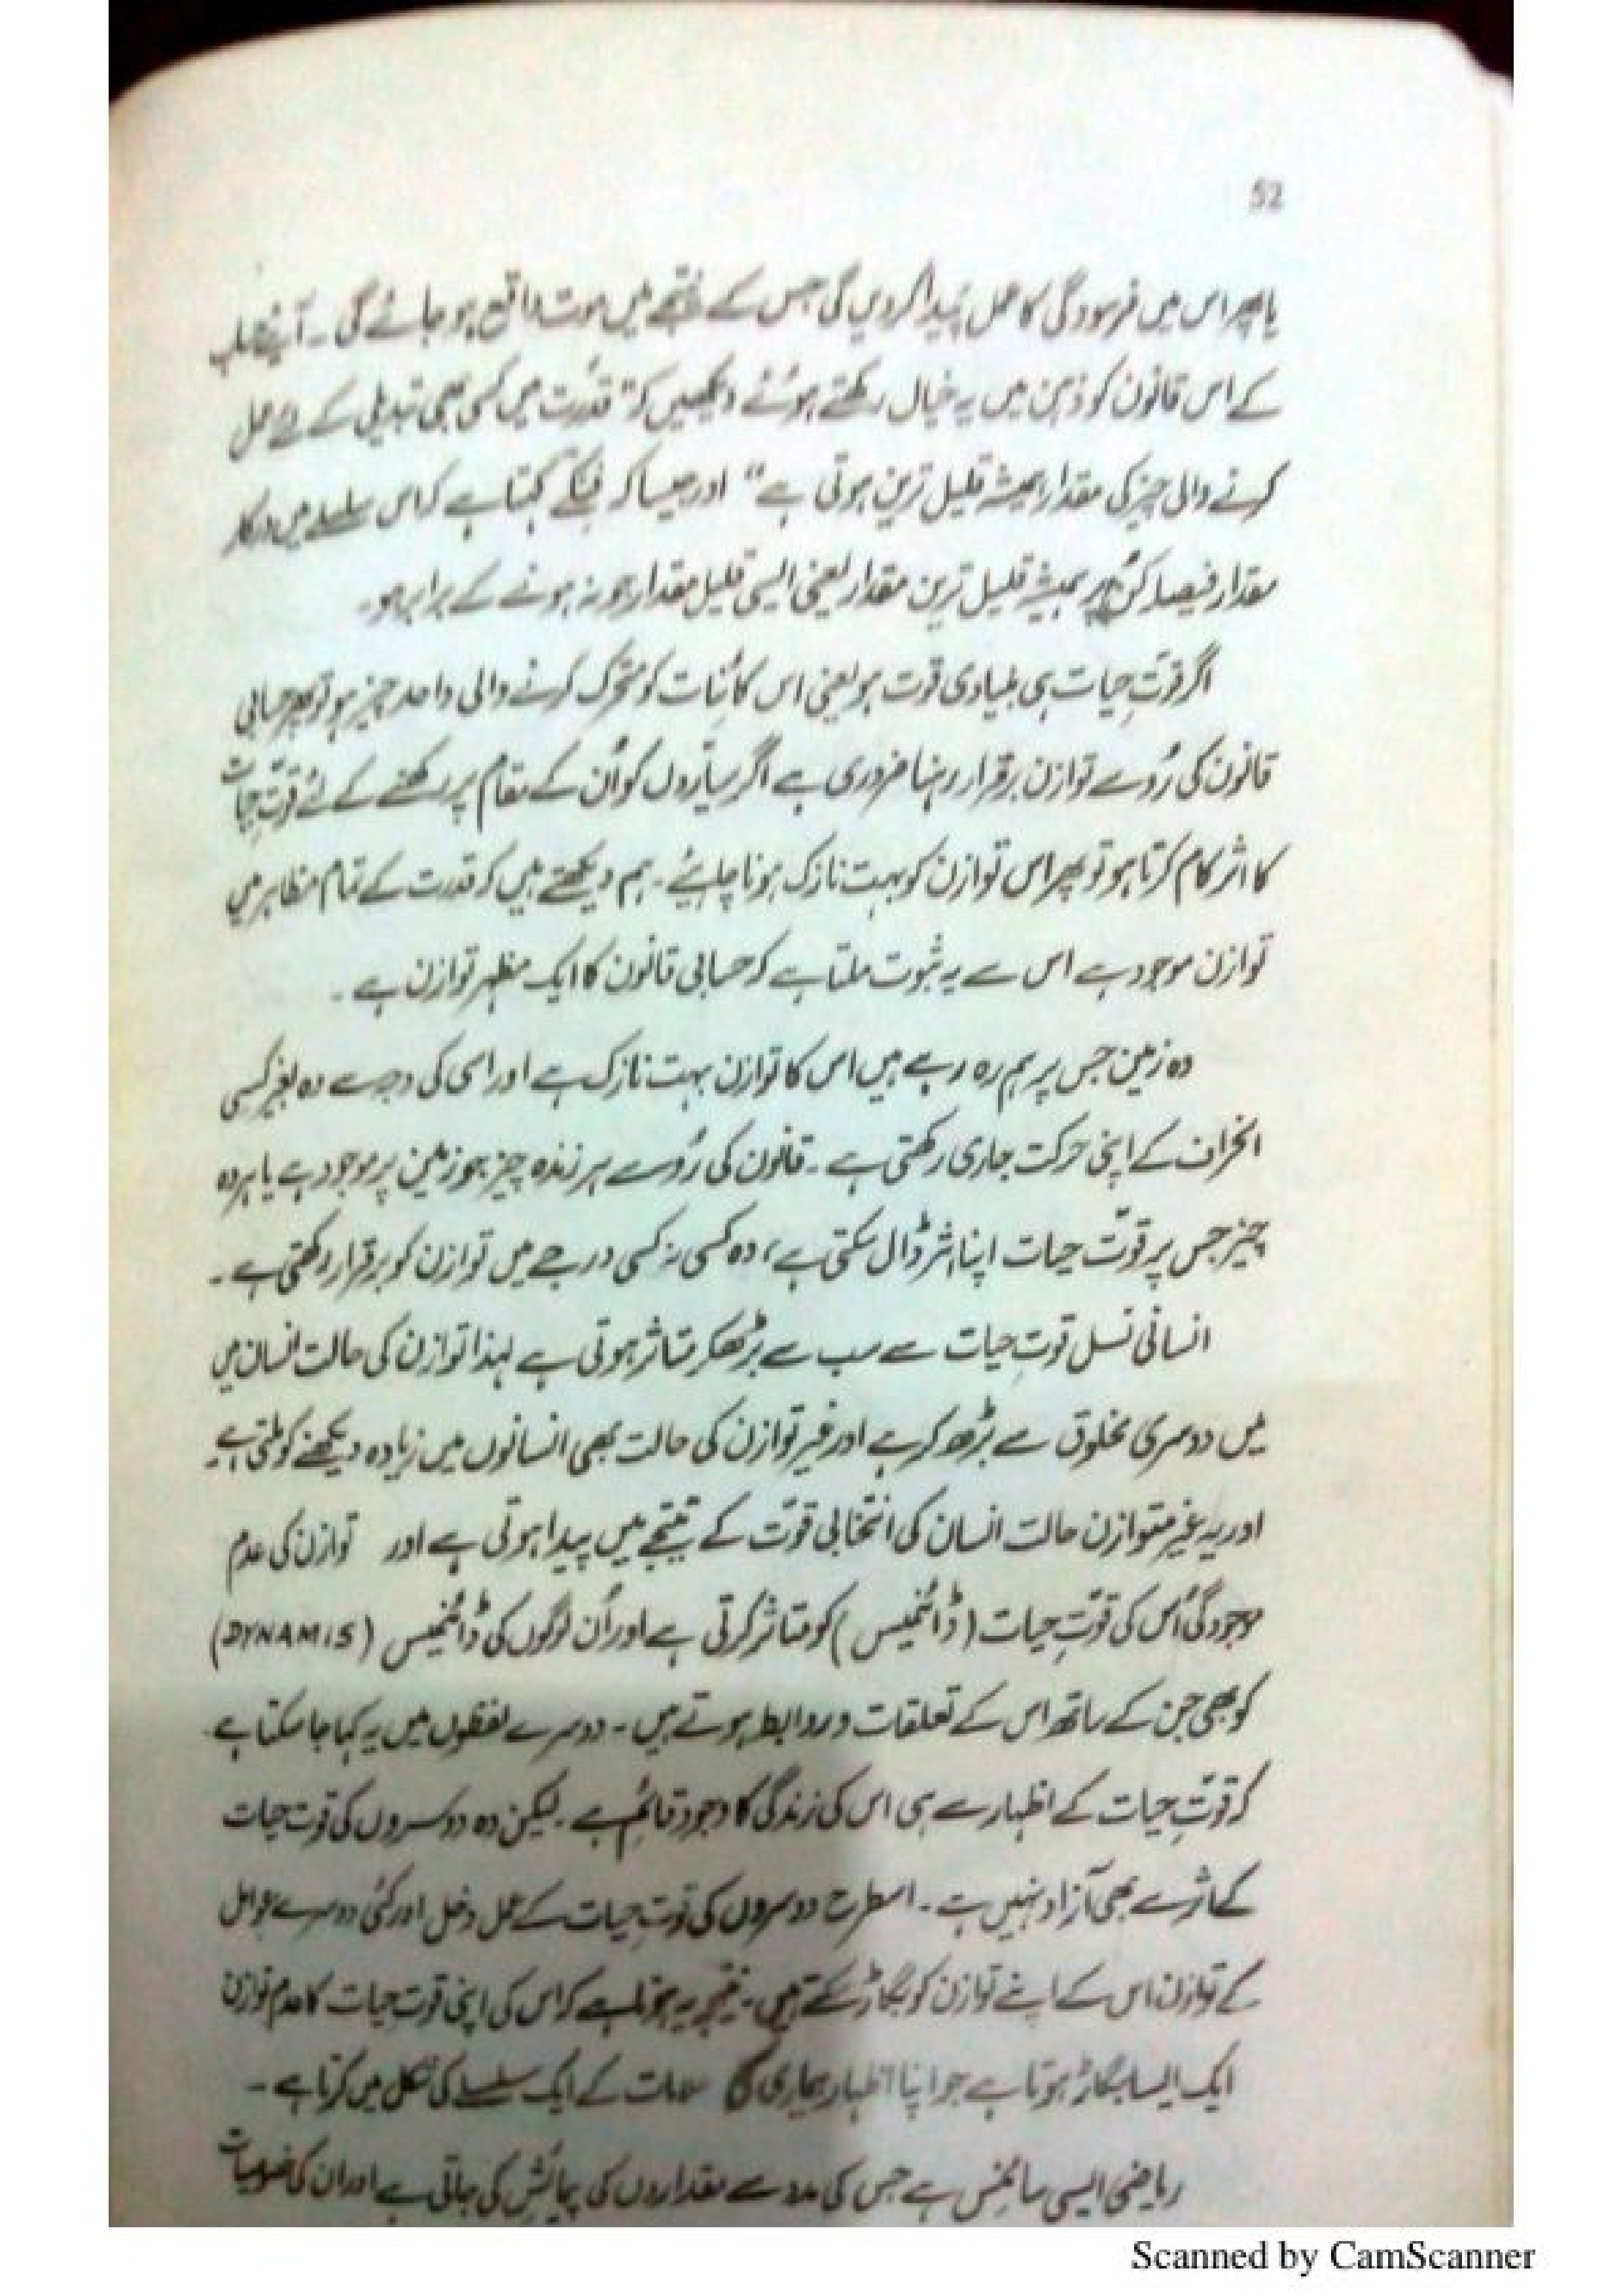 52
یا پھر اس میں فرسودگی کا عمل پیدا کر دیں گی جس کے نتیجے میں موت واقع ہو جائے گی ۔ آیئے
کے اس قانون کو ذہن میں یہ خیال رکھتے ہوئے دیکھیں کہ "قدرت میں کسی بھی تبدیلی کے لئے عمل
کرنے والی چیز کی مقدار ہمیشہ قلیل ترین ہوتی ہے" اور جیسا کہ فنکے کہتا ہے کہ اس سلسلے میں درکار
مقدار فیصلہ کن ہمیشہ قلیل ترین مقدار یعنی ایسی قلیل مقدار جو نہ ہونے کے برابر ہو۔
اگر قوتِ حیات ہی بنیادی قوت ہو یعنی اس کائنات کو متحرک کرنے والی واحد چیز ہو تو پھر حسابی
قانون کی رُو سے توازن برقرار رہنا ضروری ہے اگر سیاروں کو اُن کے مقام پر رکھنے کے لئے قوتِ حیات
کا اثر کام کرتا ہو تو پھر اس توازن کو بہت نازک ہونا چاہیئے ۔ ہم دیکھتے ہیں کہ قدرت کے تمام مظاہر میں
توازن موجود ہے اس سے یہ ثبوت ملتا ہے کہ حسابی قانون کا ایک مظہر توازن ہے ۔
وہ زمین جس پر ہم رہ رہے ہیں اس کا توازن بہت نازک ہے اور اسی کی وجہ سے وہ بغیر کسی
انحراف کے اپنی حرکت جاری رکھتی ہے ۔ قانون کی رُو سے ہر زندہ چیز جو زمین پر موجود ہے یا ہر وہ
چیز جس پر قوتّ حیات اپنا اثر ڈال سکتی ہے، وہ کسی نہ کسی درجے میں توازن کو برقرار رکھتی ہے ۔
انسانی نسل قوتِ حیات سے سب سے بڑھ کر متاثر ہوتی ہے لہذا توازن کی حالت انسان میں
میں دوسری مخلوق سے بڑھ کر ہے اور غیر توازن کی حالت بھی انسانوں میں زیادہ دیکھنے کو ملتی ہے
اور یہ غیر متوازن حالت انسان کی انتخابی قوتّ کے نتیجے میں پیدا ہوتی ہے اور توازن کی عدم
موجودگی اُس کی قوتّ حیات (ڈائنمیس) کو متاثر کرتی ہے اور اُن لوگوں کی ڈائنمیس (DYNAMIS)
کو بھی جن کے ساتھ اس کے تعلقات و روابط ہوتے ہیں ۔ دوسرے لفظوں میں یہ کہا جا سکتا ہے
کہ قوتّ حیات کے اظہار سے ہی اس کی زندگی کا وجود قائم ہے ۔ لیکن وہ دوسروں کی قوت حیات
کے اثر سے بھی آزاد نہیں ہے ۔ اسطرح دوسروں کی قوتِ حیات کے عمل دخل اور کئی دوسرے عوامل
کے توازن اس کے اپنے توازن کو بگاڑ سکتے ہیں ۔ نتیجہ یہ ہوتا ہے کہ اس کی اپنی قوت حیات کا عدم توازن
ایک ایسا بگاڑ ہوتا ہے جو اپنا اظہار بیماری کی علامات کے ایک سلسلے کی شکل میں کرتا ہے ۔
ریاضی ایسی سائنس ہے جس کی مدد سے مقداروں کی پیمائش کی جاتی ہے اور ان کی خصوصیات
Scanned by CamScanner